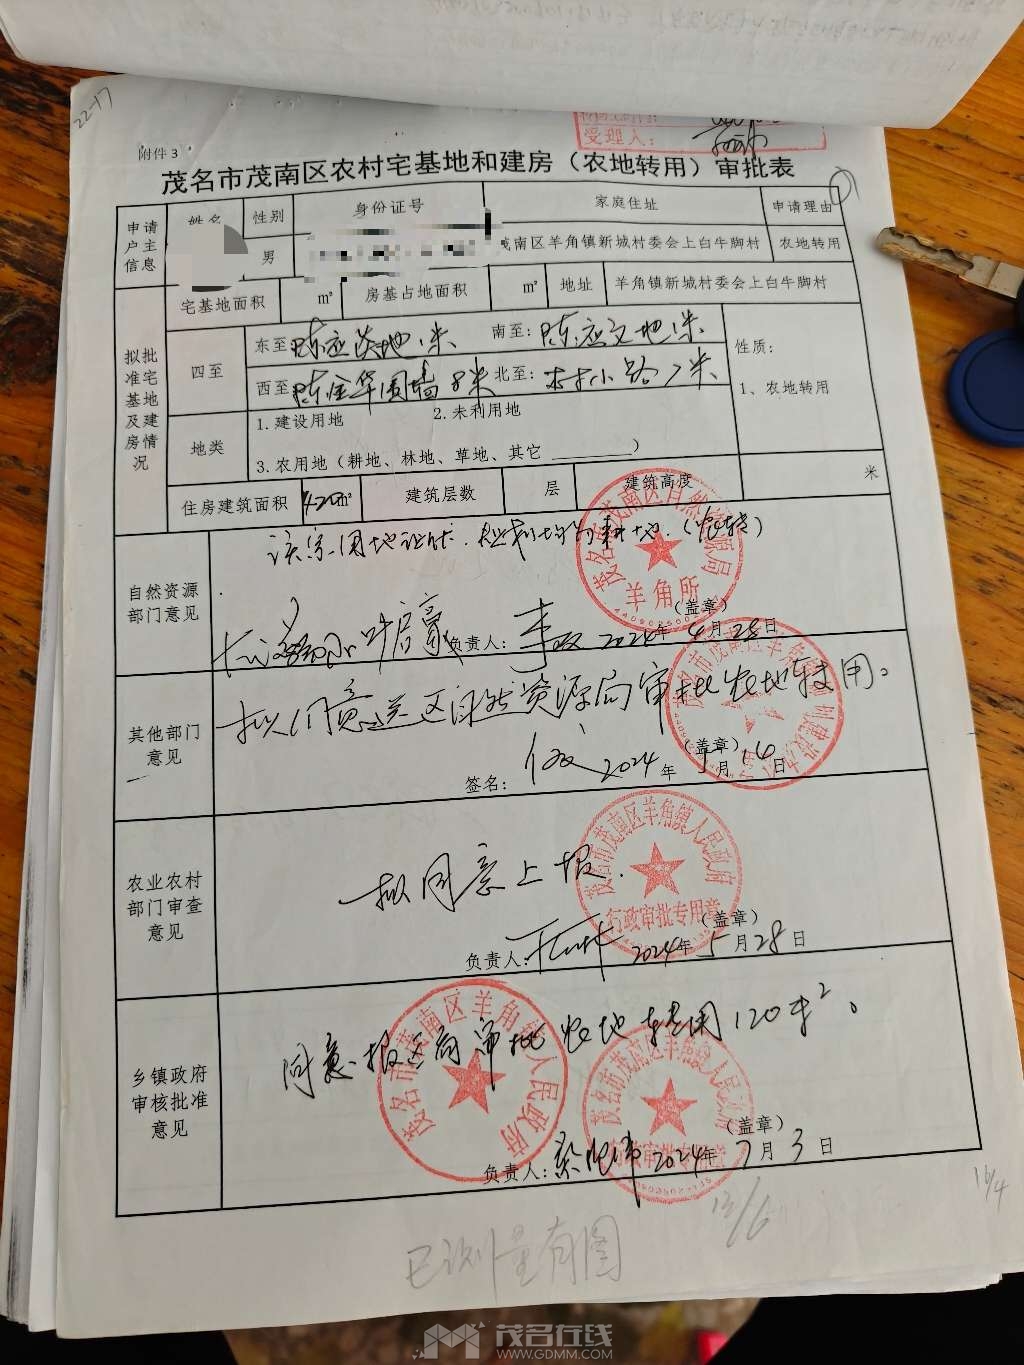 22-17
受理人：
附件3
茂名市茂南区农村宅基地和建房（农地转用）审批表
申请户主信息
姓名
性别
身份证号
家庭住址
申请理由
男
茂南区羊角镇新城村委会上白牛脚村
农地转用
拟批准宅基地及建房情况
宅基地面积
㎡
房基占地面积
㎡
地址
羊角镇新城村委会上白牛脚村
四至
东至
南至：陈应文地1米
西至陈金华围墙8米
北至：本村小路7米
性质：
1、农地转用
地类
1.建设用地
2.未利用地
3.农用地（耕地、林地、草地、其它 ________）
住房建筑面积
420㎡
建筑层数
层
建筑高度
米
自然资源部门意见
茂名市茂南区自然资源局
羊角所
（盖章）
负责人：
2024年4月28日
其他部门意见
拟同意送区自然资源局审批农地转用。
（盖章）
签名：
2024年5月14日
农业农村部门审查意见
拟同意上报.
茂名市茂南区羊角镇人民政府
行政审批专用章
（盖章）
负责人：
2024年5月28日
乡镇政府审核批准意见
同意报区局审批农地转用120米²。
茂名市茂南区羊角镇人民政府
茂名市茂南区羊角镇人民政府
行政审批专用章
（盖章）
负责人：
2024年7月3日
16/4
13/6
已测量有图
茂名在线
WWW.GDMM.COM